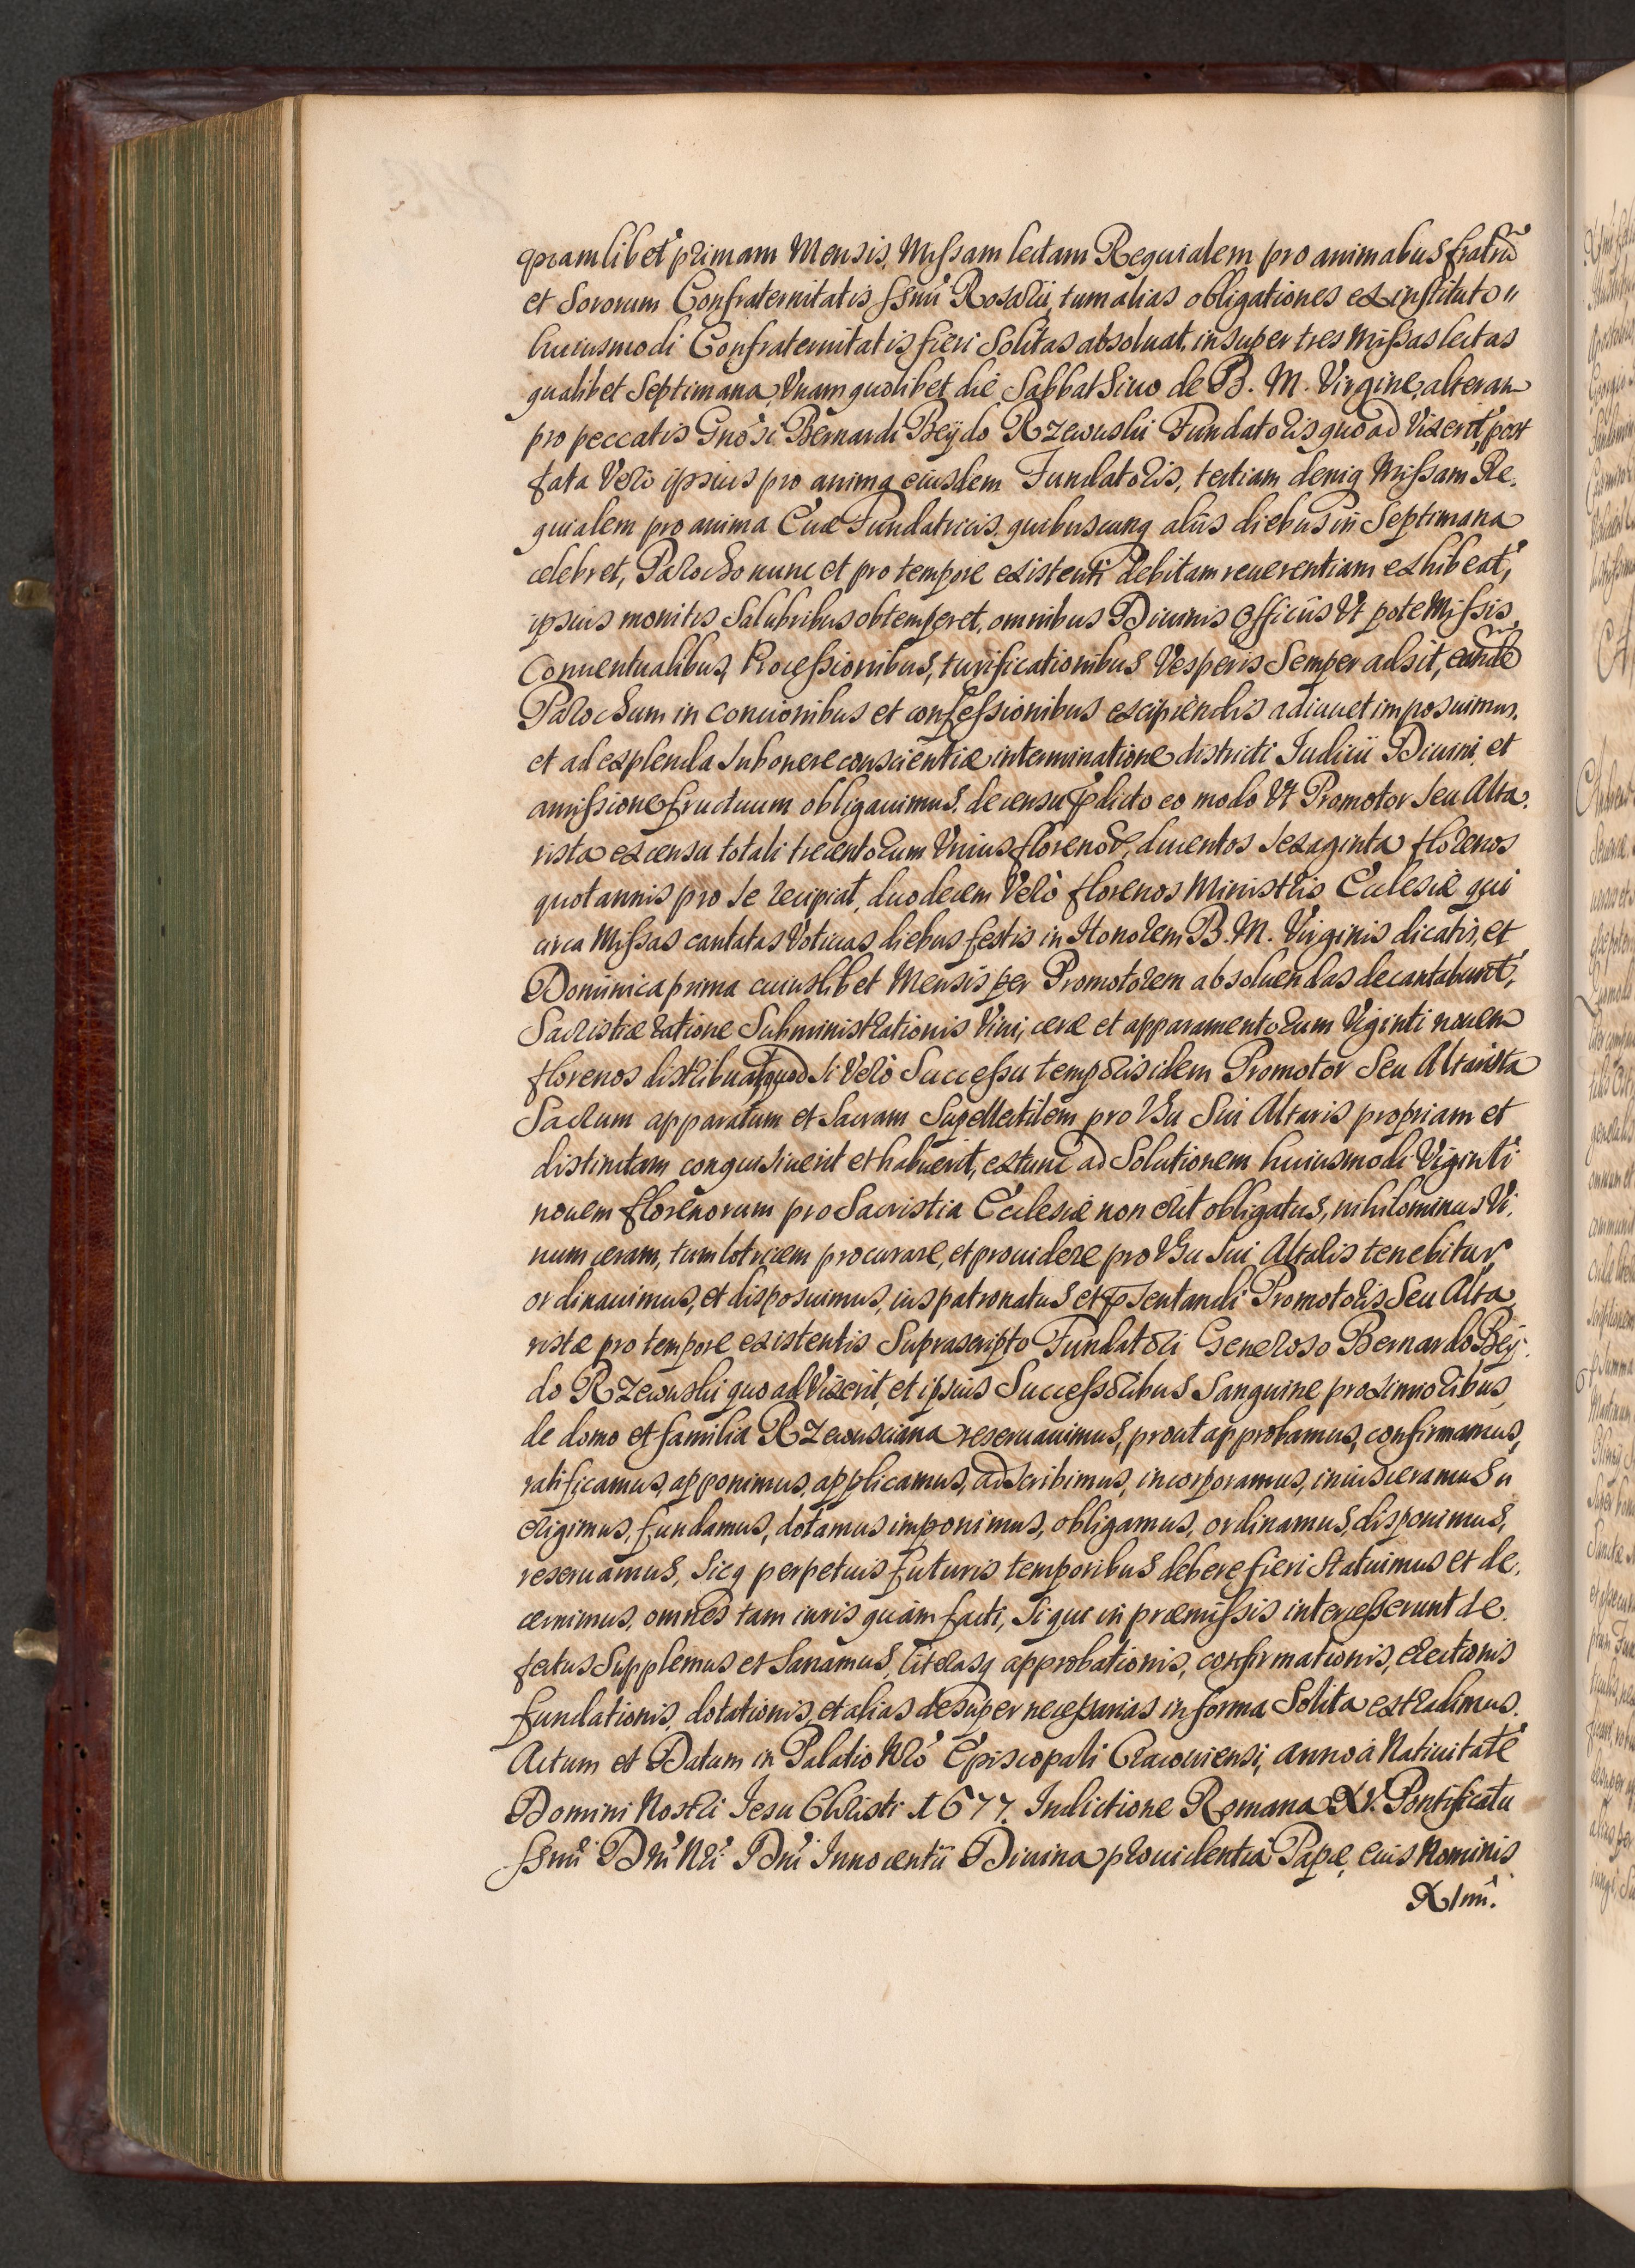 quamlibet primam Mensis, Missam lectam Requialem pro animabus fratrũ
et Sororum Confraternitatis SSmi Rosarii, tum alias obligationes ex instituto
huiusmodi Confraternitatis fieri Solitas absoluat, insuper tres Missas lectas
qualibet Septimana, Vnam quolibet die Sabbathiuo de B. M. Virgine, alteram
pro peccatis Gnosi Bernardi Beydo Rzewuski Fundatoris quoad Vixerit, post
fata Vero ipsius pro anima eiusdem Fundatoris, tertiam deniq Missam Re-
quialem pro anima Euae Fundatricis, quibuscunq aliis diebus in Septimana
celebret, Parocho nunc et pro tempore existenti debitam reuerentiam exhibeat,
ipsius monitis Salubribus obtemperet, omnibus Diuinis Officiis Vt pote Missis,
Conuentualibus, Processionibus, turificationibus Vesperis Semper adsit, eundẽ
Parochum in concionibus et confessionibus excipiendis adiuuet imposuimus,
et ad explenda Sub onere conscientiæ interminatione districti Iudicii Diuini, et
amissione fructuum obligauimus, de censu p̱dicto eo modo Vt Promotor Seu Alta-
rista ex censu totali trecentorum Vnius florenor, ducentos Sexaginta florenos
quotannis pro Se recipiat, duodecem Verò florenos Ministris Ecclesiæ qui
circa Missas cantatas Votiuas diebus festis in Honorem B. M. Virginis dicatis, et
Dominica prima cuiuslibet Mensis per Promotorem absoluendas decantabunt,
Sacristiæ ratione Subministrationis Vini, ceræ et apparamentorum Viginti nouem
florenos distribuat, quod Si Verò Successu temporis idem Promotor Seu Altarista
Sacrum apparatum et Sacram Supellectilem pro Vsu Sui Altaris propriam et
distinctam conquisiuerit et habuerit, ex tunc ad Solutionem huiusmodi Viginti
nouem florenorum pro Sacristia Ecclesiæ non erit obligatus, nihilominus Vi-
num ceram, tum lotricem procurare, et prouidere pro Vsu Sui Altaris tenebitur
ordinauimus, et disposuimus, ius patronatus et p̱sentandi Promotoris Seu Alta
ristæ pro tempore existentis Suprascripto Fundatori Generoso Bernardo Bey-
do Rzewuski quoad Vixerit, et ipsius Successoribus Sanguine proximioribus,
de domo et familia Rzewusciana reseruauimus, prout approbamus, confirmamus,
ratificamus, apponimus, applicamus, adscribimus, incorporamus, inuisceramus
erigimus, fundamus, dotamus imponimus, obligamus, ordinamus, disponimus,
reseruamus, Sicq perpetuis futuris temporibus debere fieri Statuimus et de-
cernimus, omnes tam iuris quàm facti, Si qui in præmissis intercesserunt de-
fectus Supplemus et Sanamus, literasq approbationis, confirmationis, erectionis
fundationis, dotationis, et alias desuper necessarias in forma Solita extradimus.
Actum et Datum in Palatio Nrõ Episcopali Cracouiensi, anno à Natiuitate
Domini Nostri Iesu Christi 1677. Indictione Romana XV. Pontificatu
SSmi Dñi Nri Dñi Innocentii Diuina prouidentia Papæ, eius Nominis
XImi.